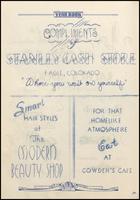 YEAR BOOK
COMPLIMENTS
of
STABILEY CASH STORE
EAGLE, COLORADO
"Where you wait on yourself"
Smart
HAIR STYLES
at
The
MODERN
BEAUTY SHOP
FOR THAT
HOMELIKE
ATMOSPHERE
Eat
AT
COWDEN'S CAFE